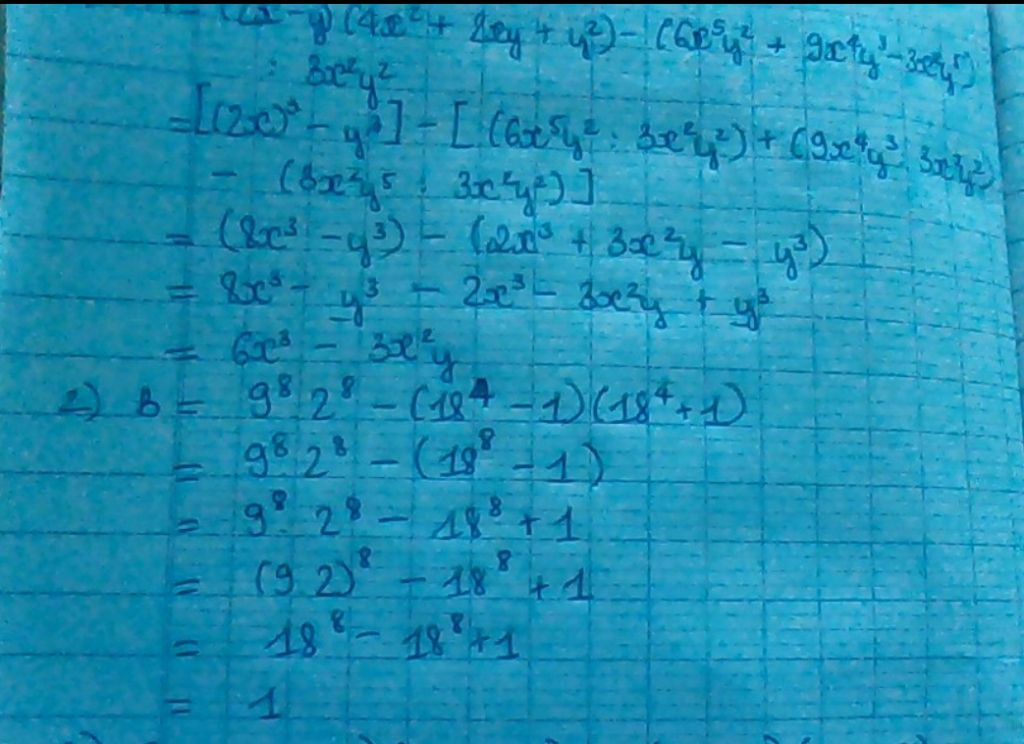 (4x² + 2xy + y²) - (6x⁵y² + 9x⁴y³ - 3x²y⁵)
: 3x²y²
= [(2x)³ - y³] - [(6x⁵y² : 3x²y²) + (9x⁴y³ : 3x²y²)
- (3x²y⁵ : 3x²y²)]
= (8x³ - y³) - (2x³ + 3x²y - y³)
= 8x³ - y³ - 2x³ - 3x²y + y³
= 6x³ - 3x²y
2) B = 9⁸ 2⁸ - (18⁴ - 1)(18⁴ + 1)
= 9⁸ 2⁸ - (18⁸ - 1)
= 9⁸ 2⁸ - 18⁸ + 1
= (9 2)⁸ - 18⁸ + 1
= 18⁸ - 18⁸ + 1
= 1